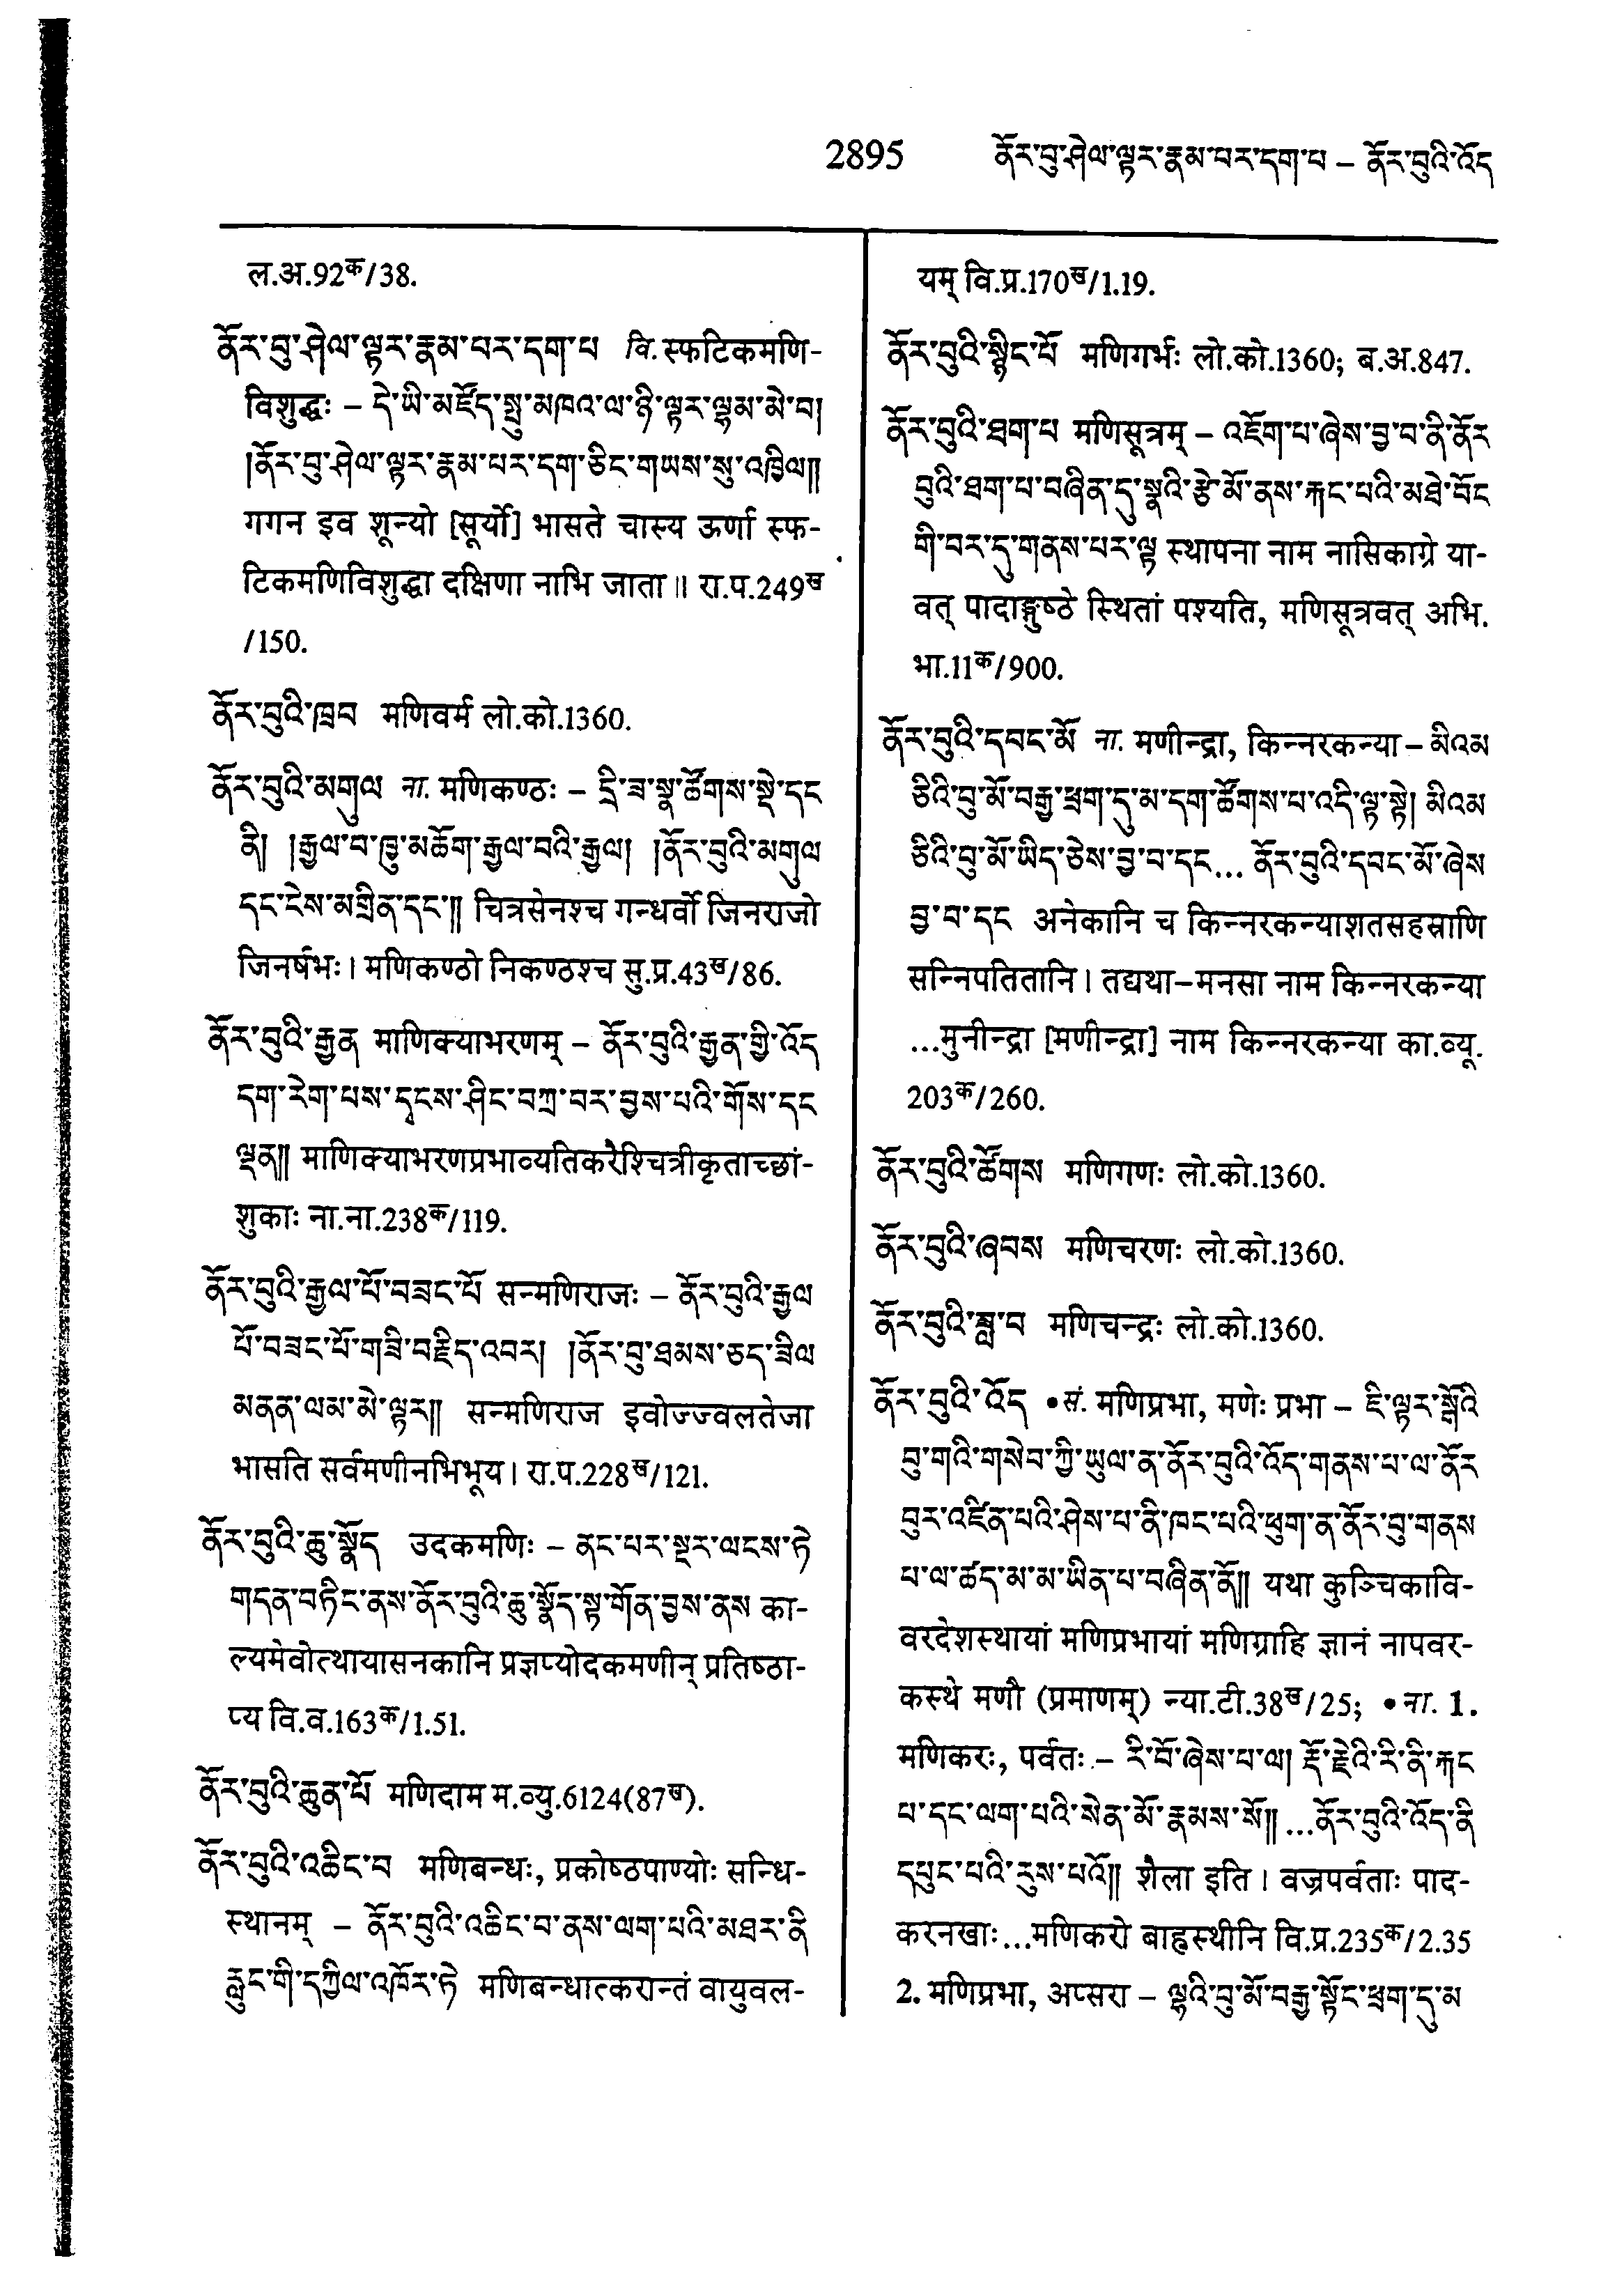 2895 ནོར་བུ་ཤེལ་ལྟར་རྣམ་པར་དག་པ – ནོར་བུའི་འོད
ल.अ.92क/38.
ནོར་བུ་ཤེལ་ལྟར་རྣམ་པར་དག་པ वि. स्फटिकमणि-
विशुद्धः – དེ་ཡི་མཛོད་སྤུ་མཁའ་ལ་ཉི་ལྟར་ལྷམ་མེ་བ།
།ནོར་བུ་ཤེལ་ལྟར་རྣམ་པར་དག་ཅིང་གཡས་སུ་འཁྱིལ།།
गगन इव शून्यो [सूर्यो] भासते चास्य ऊर्णा स्फ-
टिकमणिविशुद्धा दक्षिणा नाभि जाता ॥ रा.प.249ख
/150.
ནོར་བུའི་ཁྲབ मणिवर्म लो.को.1360.
ནོར་བུའི་མགུལ ना. मणिकण्ठः – དྲི་ཟ་སྣ་ཚོགས་སྡེ་དང
ནི། །རྒྱལ་བ་ཁྱུ་མཆོག་རྒྱལ་བའི་རྒྱལ། །ནོར་བུའི་མགུལ
དང་ངེས་མགྲིན་དང་།། चित्रसेनश्च गन्धर्वो जिनराजो
जिनर्षभः। मणिकण्ठो निकण्ठश्च सु.प्र.43ख/86.
ནོར་བུའི་རྒྱན माणिक्याभरणम् – ནོར་བུའི་རྒྱན་གྱི་འོད
དག་རེག་པས་དྭངས་ཤིང་བཀྲ་བར་བྱས་པའི་གོས་དང
ལྡན།། माणिक्याभरणप्रभाव्यतिकरैश्चित्रीकृताच्छां-
शुकाः ना.ना.238क/119.
ནོར་བུའི་རྒྱལ་པོ་བཟང་པོ सन्मणिराजः – ནོར་བུའི་རྒྱལ
པོ་བཟང་པོ་གཟི་བརྗིད་འབར། །ནོར་བུ་ཐམས་ཅད་ཟིལ
མནན་ལམ་མེ་ལྟར།། सन्मणिराज इवोज्ज्वलतेजा
भासति सर्वमणीनभिभूय। रा.प.228ख/121.
ནོར་བུའི་ཆུ་སྣོད उदकमणिः – ནང་པར་སྔར་ལངས་ཏེ
གདན་བཏིང་ནས་ནོར་བུའི་ཆུ་སྣོད་སྟ་གོན་བྱས་ནས का-
ल्यमेवोत्थायासनकानि प्रज्ञप्योदकमणीन् प्रतिष्ठा-
प्य वि.व.163क/1.51.
ནོར་བུའི་ཆུན་པོ मणिदाम म.व्यु.6124(87ख).
ནོར་བུའི་འཆིང་བ मणिबन्धः, प्रकोष्ठपाण्योः सन्धि-
स्थानम् – ནོར་བུའི་འཆིང་བ་ནས་ལག་པའི་མཐར་ནི
རླུང་གི་དཀྱིལ་འཁོར་ཏེ मणिबन्धात्करान्तं वायुवल-
यम् वि.प्र.170ख/1.19.
ནོར་བུའི་སྙིང་པོ मणिगर्भः लो.को.1360; ब.अ.847.
ནོར་བུའི་ཐག་པ मणिसूत्रम् – འཇོག་པ་ཞེས་བྱ་བ་ནི་ནོར
བུའི་ཐག་པ་བཞིན་དུ་སྣའི་རྩེ་མོ་ནས་རྐང་པའི་མཐེ་བོང
གི་བར་དུ་གནས་པར་ལྟ स्थापना नाम नासिकाग्रे या-
वत् पादाङ्गुष्ठे स्थितां पश्यति, मणिसूत्रवत् अभि.
भा.11क/900.
ནོར་བུའི་དབང་མོ ना. मणीन्द्रा, किन्नरकन्या – མིའམ
ཅིའི་བུ་མོ་བརྒྱ་ཕྲག་དུ་མ་དག་ཚོགས་པ་འདི་ལྟ་སྟེ། མིའམ
ཅིའི་བུ་མོ་ཡིད་ཅེས་བྱ་བ་དང... ནོར་བུའི་དབང་མོ་ཞེས
བྱ་བ་དང अनेकानि च किन्नरकन्याशतसहस्राणि
सन्निपतितानि। तद्यथा–मनसा नाम किन्नरकन्या
...मुनीन्द्रा [मणीन्द्रा] नाम किन्नरकन्या का.व्यू.
203क/260.
ནོར་བུའི་ཚོགས मणिगणः लो.को.1360.
ནོར་བུའི་ཞབས मणिचरणः लो.को.1360.
ནོར་བུའི་ཟླ་བ मणिचन्द्रः लो.को.1360.
ནོར་བུའི་འོད •सं. मणिप्रभा, मणेः प्रभा – ཇི་ལྟར་སྒོའི
བུ་གའི་གསེབ་ཀྱི་ཡུལ་ན་ནོར་བུའི་འོད་གནས་པ་ལ་ནོར
བུར་འཛིན་པའི་ཤེས་པ་ནི་ཁང་པའི་ཕུག་ན་ནོར་བུ་གནས
པ་ལ་ཚད་མ་མ་ཡིན་པ་བཞིན་ནོ།། यथा कुञ्चिकावि-
वरदेशस्थायां मणिप्रभायां मणिग्राहि ज्ञानं नापवर-
कस्थे मणौ (प्रमाणम्) न्या.टी.38ख/25; •ना. 1.
मणिकरः, पर्वतः – རི་བོ་ཞེས་པ་ལ། རྡོ་རྗེའི་རི་ནི་རྐང
པ་དང་ལག་པའི་སེན་མོ་རྣམས་སོ།། ...ནོར་བུའི་འོད་ནི
དཔུང་པའི་རུས་པའོ།། शैला इति। वज्रपर्वताः पाद-
करनखाः...मणिकरो बाह्वस्थीनि वि.प्र.235क/2.35
2. मणिप्रभा, अप्सरा – ལྷའི་བུ་མོ་བརྒྱ་སྟོང་ཕྲག་དུ་མ